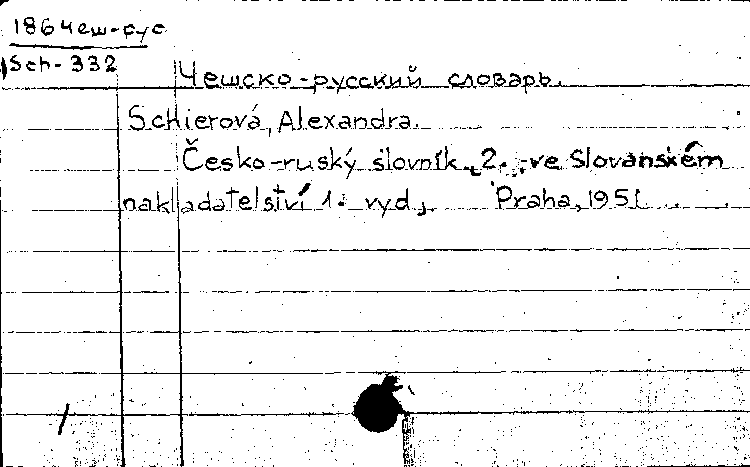 186 чеш-рус
Sch-332
Чешско-русский словарь.
Schierová, Alexandra.
Česko-ruský slovník, 2. ve Slovanském
nakladatelství 1. vyd., Praha, 1951